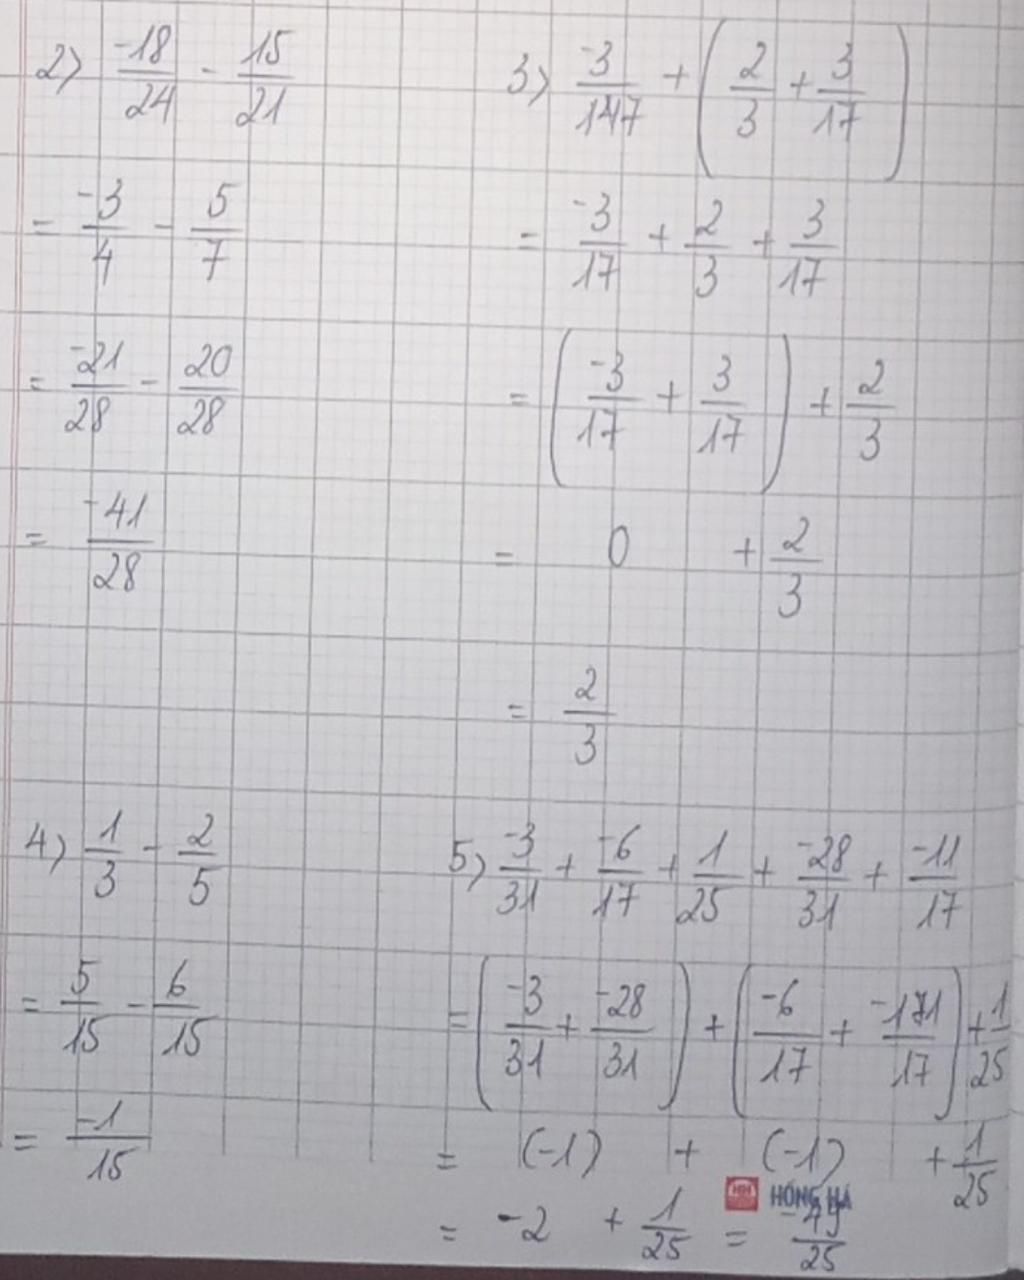 2) -18/24 - 15/21
= -3/4 - 5/7
= -21/28 - 20/28
= -41/28
3) -3/17 + (2/3 + 3/17)
= -3/17 + 2/3 + 3/17
= (-3/17 + 3/17) + 2/3
= 0 + 2/3
= 2/3
4) 1/3 - 2/5
= 5/15 - 6/15
= -1/15
5) -3/31 + -6/17 + 1/25 + -28/31 + -11/17
= (-3/31 + -28/31) + (-6/17 + -11/17) + 1/25
= (-1) + (-1) + 1/25
= -2 + 1/25 = -49/25
HỒNG HÀ